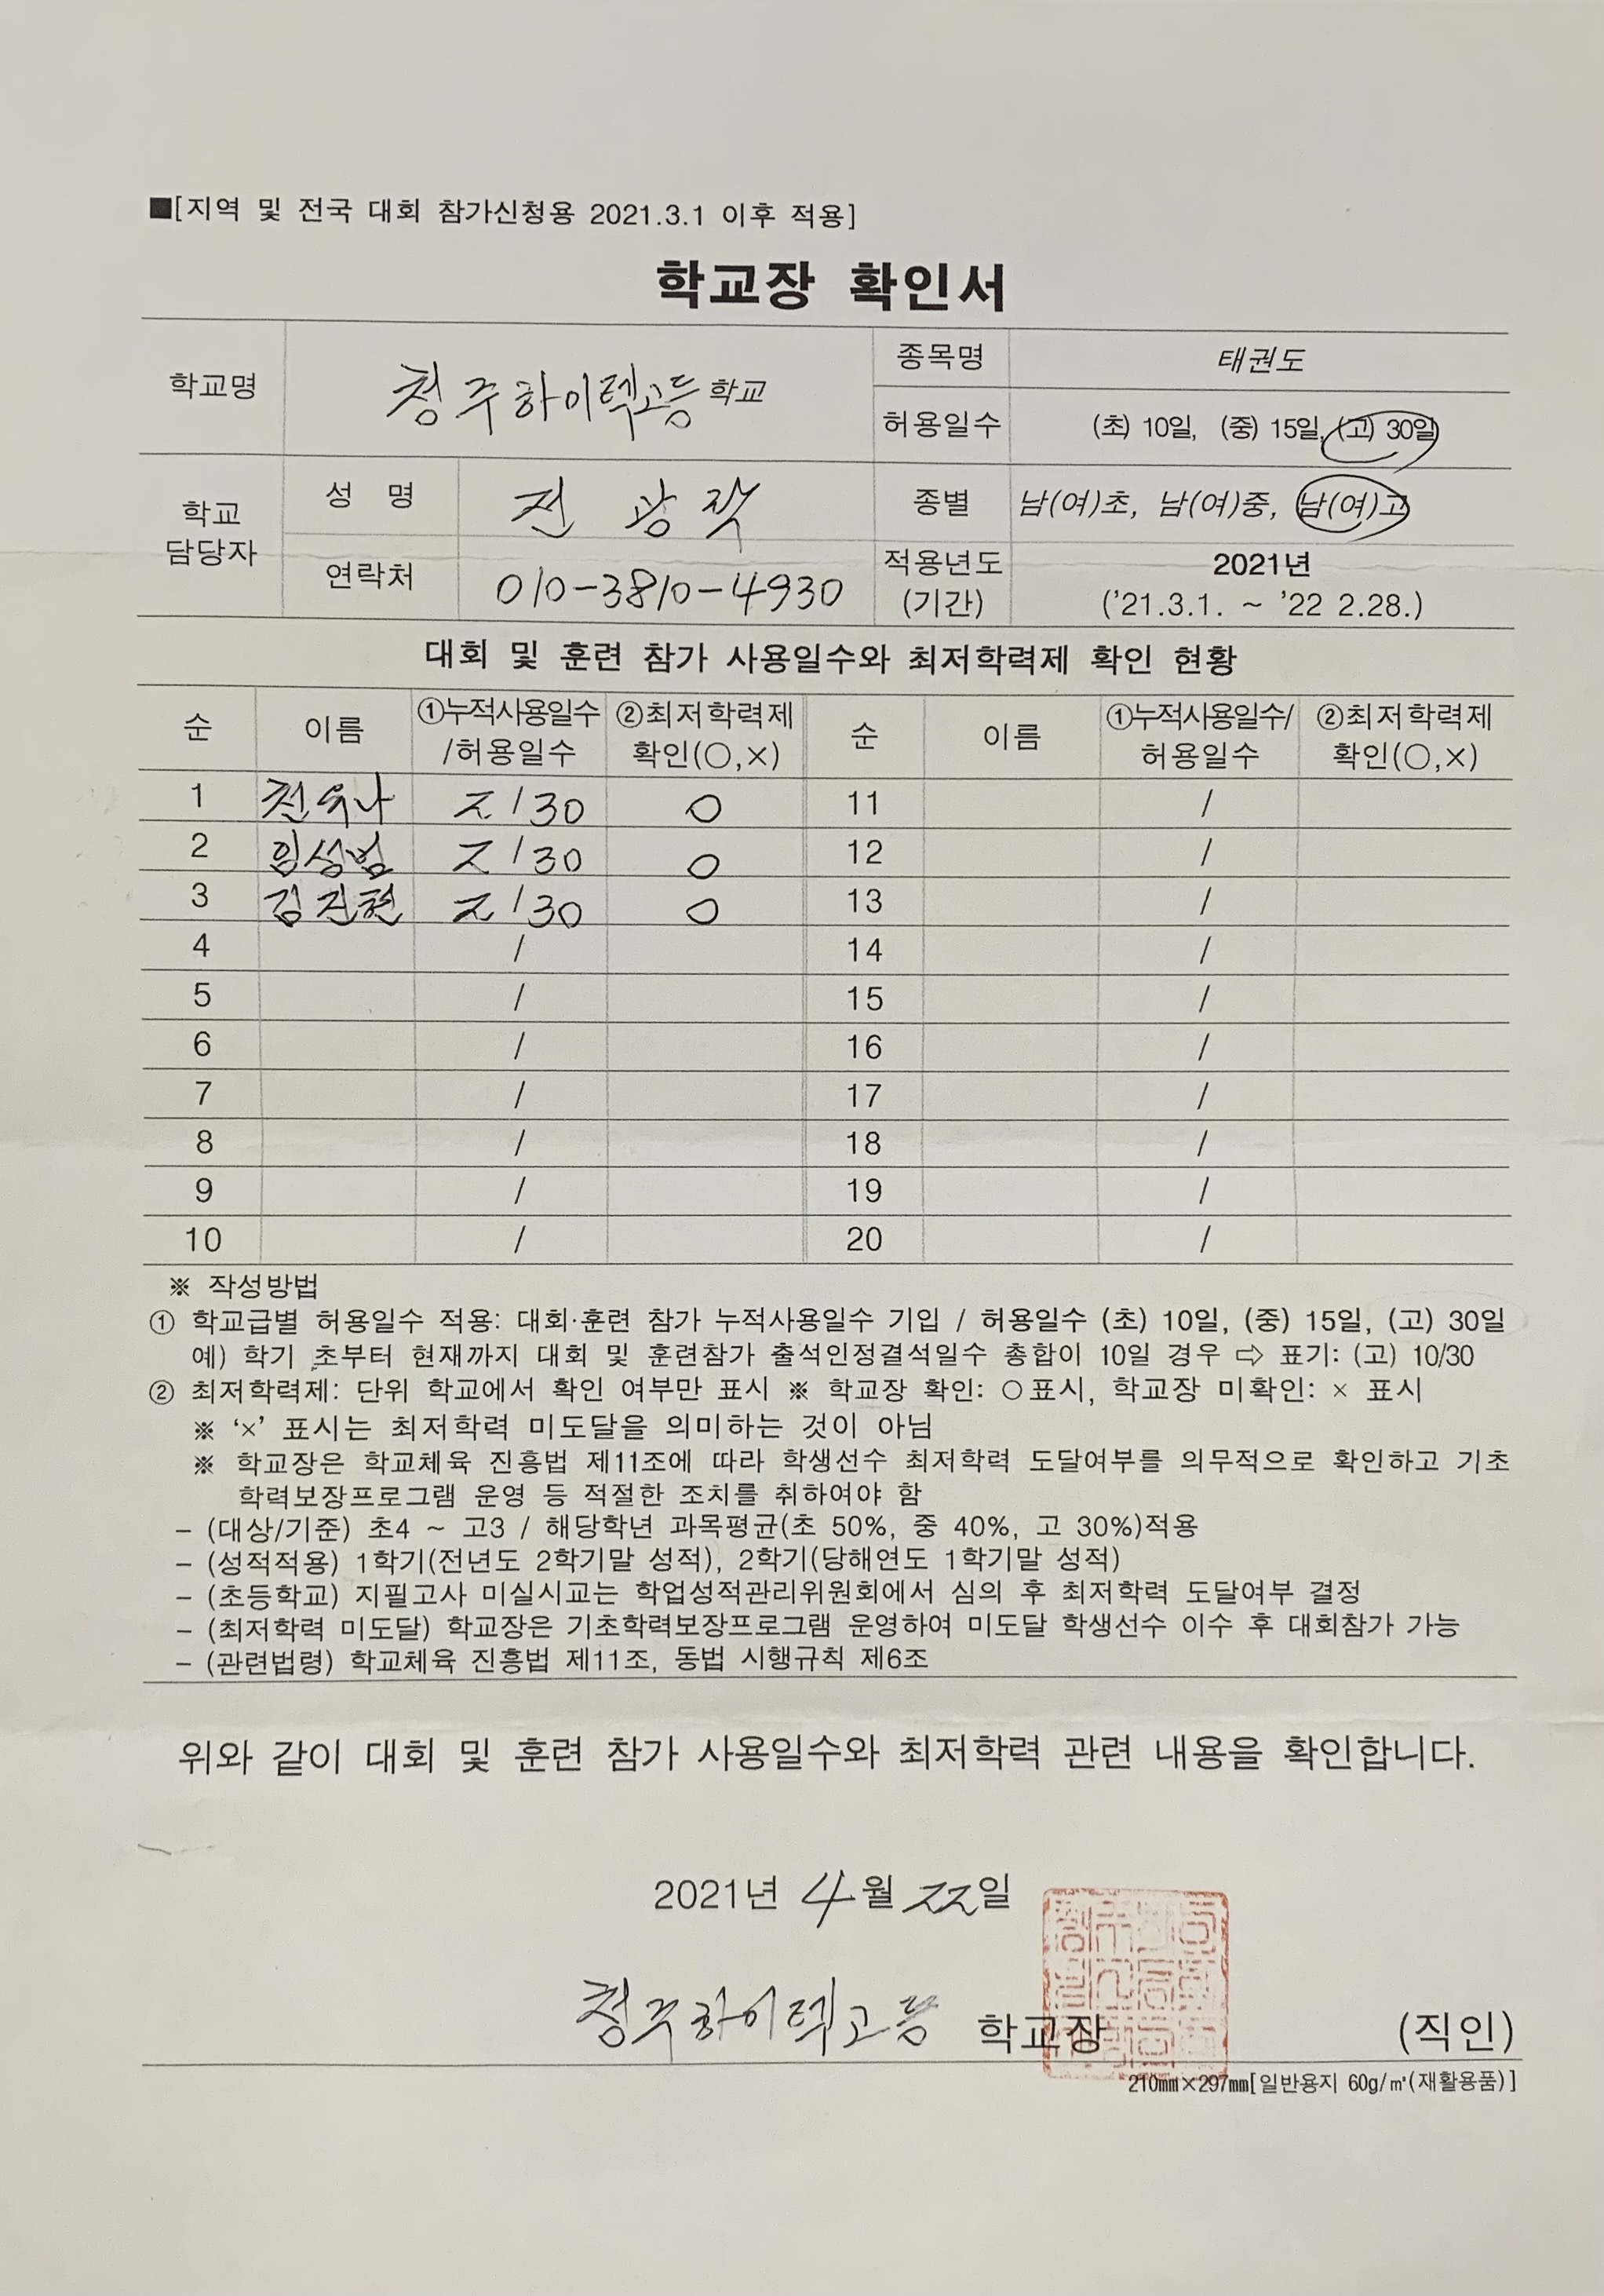 ■[지역 및 전국 대회 참가신청용 2021.3.1 이후 적용]
학교장 확인서
학교명 청주하이텍고등학교 종목명 태권도
허용일수 (초) 10일, (중) 15일, (고) 30일
학교 담당자 성 명 전 광 종별 남(여)초, 남(여)중, 남(여)고
연락처 010-3810-4930 적용년도 (기간) 2021년 ('21.3.1. ~ '22 2.28.)
대회 및 훈련 참가 사용일수와 최저학력제 확인 현황
순 이름 ①누적사용일수/허용일수 ②최저학력제 확인(○,×) 순 이름 ①누적사용일수/허용일수 ②최저학력제 확인(○,×)
1 2/30 ○ 11 /
2 임성범 2/30 ○ 12 /
3 2/30 ○ 13 /
4 / 14 /
5 / 15 /
6 / 16 /
7 / 17 /
8 / 18 /
9 / 19 /
10 / 20 /
※ 작성방법
① 학교급별 허용일수 적용: 대회·훈련 참가 누적사용일수 기입 / 허용일수 (초) 10일, (중) 15일, (고) 30일
예) 학기 초부터 현재까지 대회 및 훈련참가 출석인정결석일수 총합이 10일 경우 ⇨ 표기: (고) 10/30
② 최저학력제: 단위 학교에서 확인 여부만 표시 ※ 학교장 확인: ○표시, 학교장 미확인: × 표시
※ '×' 표시는 최저학력 미도달을 의미하는 것이 아님
※ 학교장은 학교체육 진흥법 제11조에 따라 학생선수 최저학력 도달여부를 의무적으로 확인하고 기초
학력보장프로그램 운영 등 적절한 조치를 취하여야 함
- (대상/기준) 초4 ~ 고3 / 해당학년 과목평균(초 50%, 중 40%, 고 30%)적용
- (성적적용) 1학기(전년도 2학기말 성적), 2학기(당해연도 1학기말 성적)
- (초등학교) 지필고사 미실시교는 학업성적관리위원회에서 심의 후 최저학력 도달여부 결정
- (최저학력 미도달) 학교장은 기초학력보장프로그램 운영하여 미도달 학생선수 이수 후 대회참가 가능
- (관련법령) 학교체육 진흥법 제11조, 동법 시행규칙 제6조
위와 같이 대회 및 훈련 참가 사용일수와 최저학력 관련 내용을 확인합니다.
2021년 4월 22일
청주하이텍고등 학교장 (직인)
210㎜×297㎜[일반용지 60g/㎡(재활용품)]